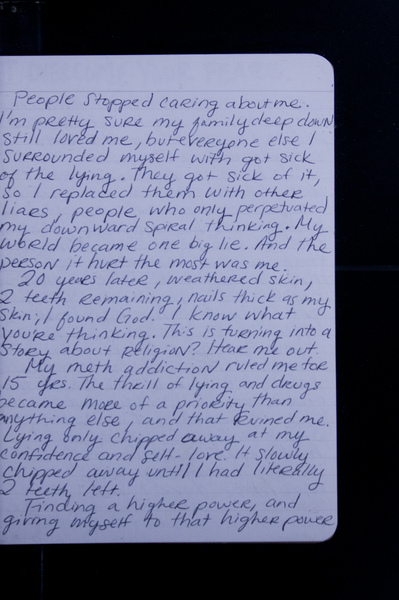 People stopped caring about me.
I'm pretty sure my family deep down
still loved me, but everyone else I
surrounded myself with got sick
of the lying. They got sick of it,
so I replaced them with other
liars, people who only perpetuated
my downward spiral thinking. My
world became one big lie. And the
person it hurt the most was me.
20 years later, weathered skin,
2 teeth remaining, nails thick as my
skin, I found God. I know what
you're thinking. This is turning into a
story about religion? Hear me out.
My meth addiction ruled me for
15 yrs. The thrill of lying and drugs
became more of a priority than
anything else, and that ruined me.
Lying only chipped away at my
confidence and self-love. It slowly
chipped away until I had literally
2 teeth left.
Finding a higher power, and
giving myself to that higher power